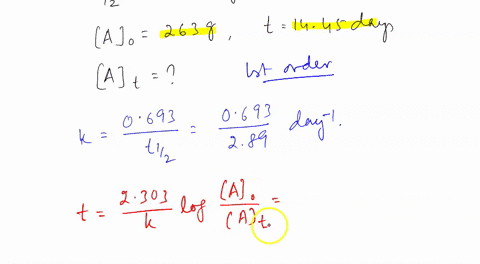 1/2
[A]₀ = 263 g, t = 14.45 days
[A]t = ? Ist order
k = 0.693/t1/2 = 0.693/2.89 day⁻¹.
t = 2.303/k log [A]₀/(A)t =